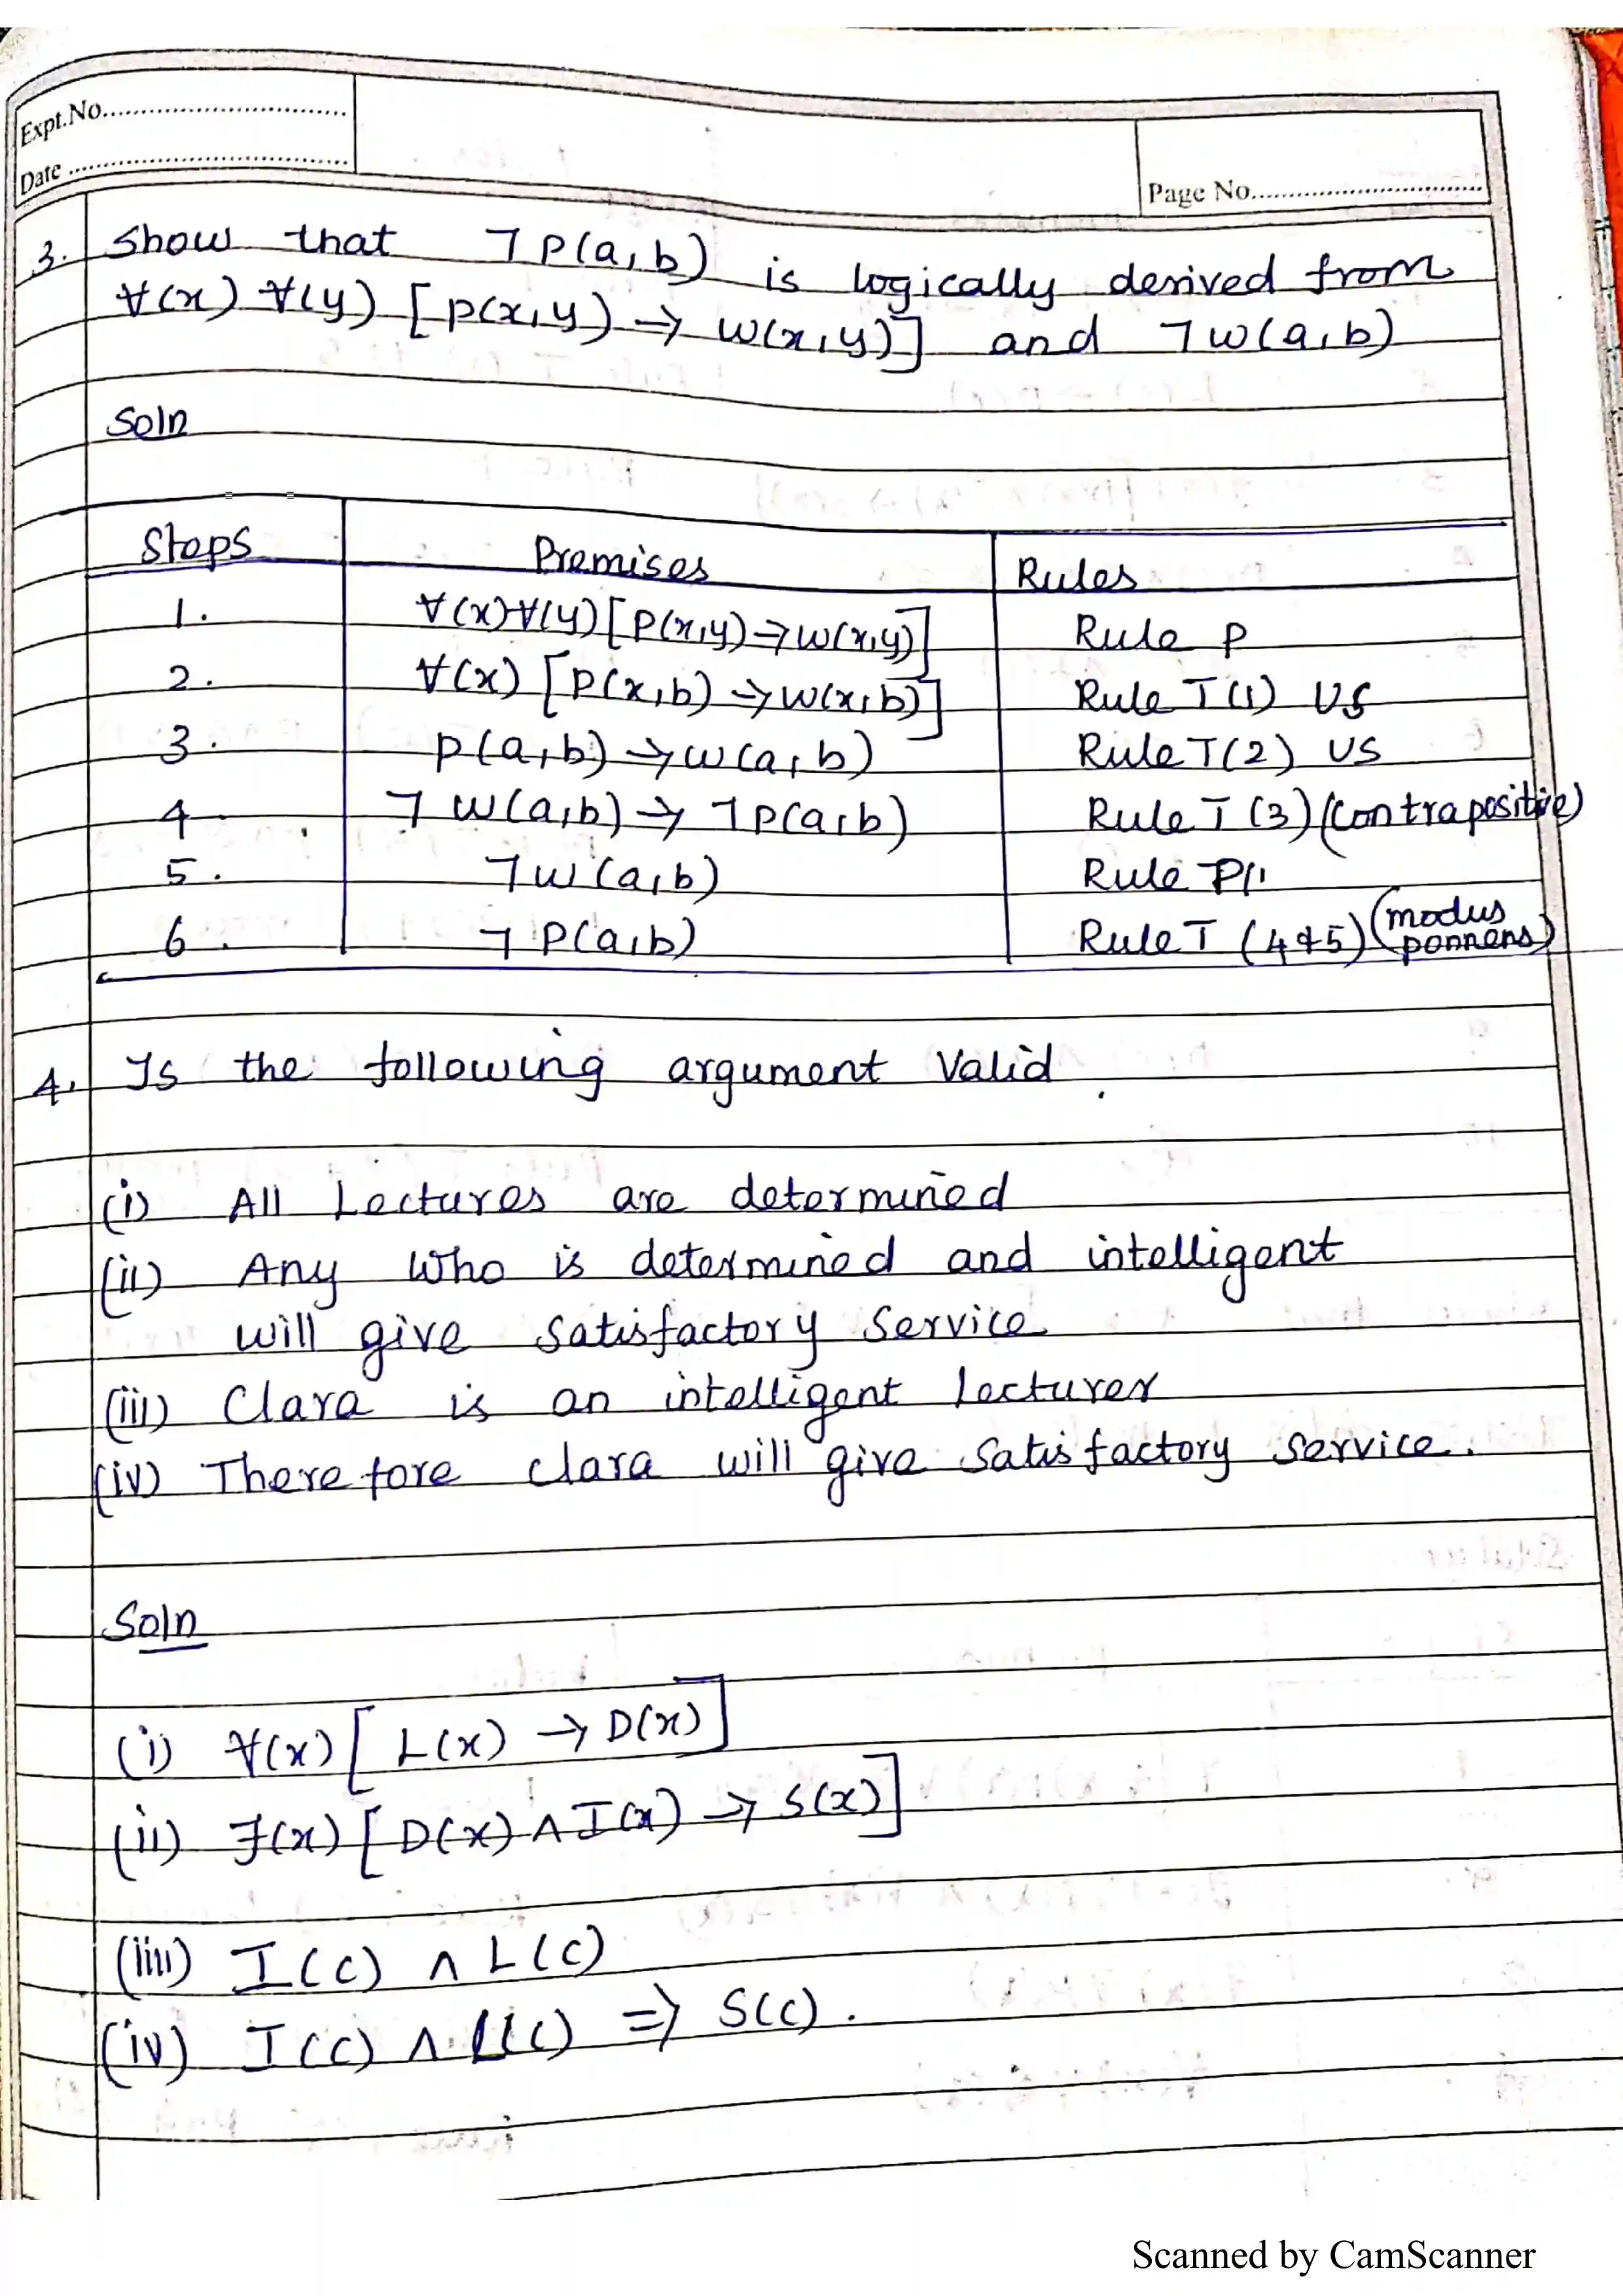 Expt.No..............................
Date ..............................
Page No..............................
3. Show that ㄱP(a,b) is logically derived from
∀(x) ∀(y) [P(x,y) → W(x,y)] and ㄱW(a,b)
Soln
Steps Premises Rules
1. ∀(x)∀(y)[P(x,y)→W(x,y)] Rule P
2. ∀(x) [P(x,b)→W(x,b)] Rule T(1) US
3. P(a,b)→W(a,b) Rule T(2) US
4 ㄱW(a,b)→ㄱP(a,b) Rule T (3) (Contrapositive)
5. ㄱW(a,b) Rule P
6. ㄱP(a,b) Rule T (4&5) (modus ponnens)
4. Is the following argument Valid.
(i) All Lectures are determined
(ii) Any who is determined and intelligent
will give satisfactory Service
(iii) Clara is an intelligent Lecturer
(iv) Therefore clara will give satisfactory service.
Soln
(i) ∀(x)[L(x) → D(x)]
(ii) ∃(x)[D(x)∧I(x) → S(x)]
(iii) I(c) ∧ L(c)
(iv) I(c) ∧ L(c) ⇒ S(c).
Scanned by CamScanner